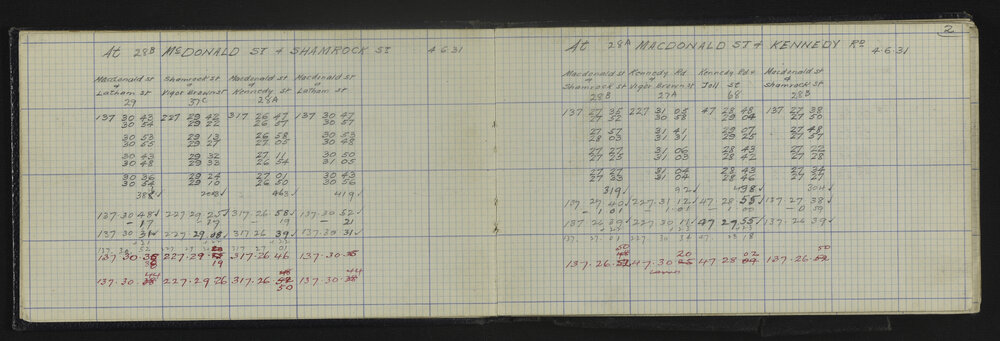 At 28B McDONALD ST & SHAMROCK ST 4.6.31
Macdonald st Shamrock st Macdonald st Macdonald st
& & & &
Latham st Vigor Brown st Kennedy st Latham st
29 37C 28A
137 30 43 227 29 42 317 26 47 137 30 47
30 54 29 22 26 57 30 57
30 53 29 13 26 58 30 53
30 55 29 27 27 05 30 48
30 43 29 32 27 11 30 50
30 48 29 33 26 54 31 05
30 36 29 24 27 01 30 43
30 54 29 10 26 50 30 56
463✓ 419✓
137.30 48✓ 227 29 25✓ 317.26 58✓ 137.30 52✓
- 17 - 19 - 19 - 21
137 30 31✓ 227 29 08 317 26 39✓ 137.30 31✓
137.30. 227.29. 19 317.26 46 137.30.
137.30. 44 227.29 26 317.26 50 137.30. 44
2
At 28A MACDONALD ST & KENNEDY RD 4.6.31
Macdonald st Kennedy Rd Kennedy Rd & Macdonald st
& & &
Shamrock st Vigor Brown st Joll st Shamrock st
28B 27A 68 28B
137 27 35 227 31 05 47 28 48 137 27 38
27 52 30 58 29 04 27 50
27 57 31 41 29 07 27 48
28 03 31 31 29 25 27 57
27 27 31 06 28 43 27 22
27 25 31 03 28 42 27 28
27 27 31 04 28 43 27 34
27 33 31 04 28 46 27 27
319✓ 92✓ 498✓ 304✓
137 27 40✓ 227.31 12✓ 47 28 55✓ 137 27 38✓
- 1 01 - 1 01 00 - 0 59
137 26 39✓ 227 30 11✓ 47 29 55✓ 137.26 39✓
50 20 02 50
137.26. 47.30 47 28 137.26.